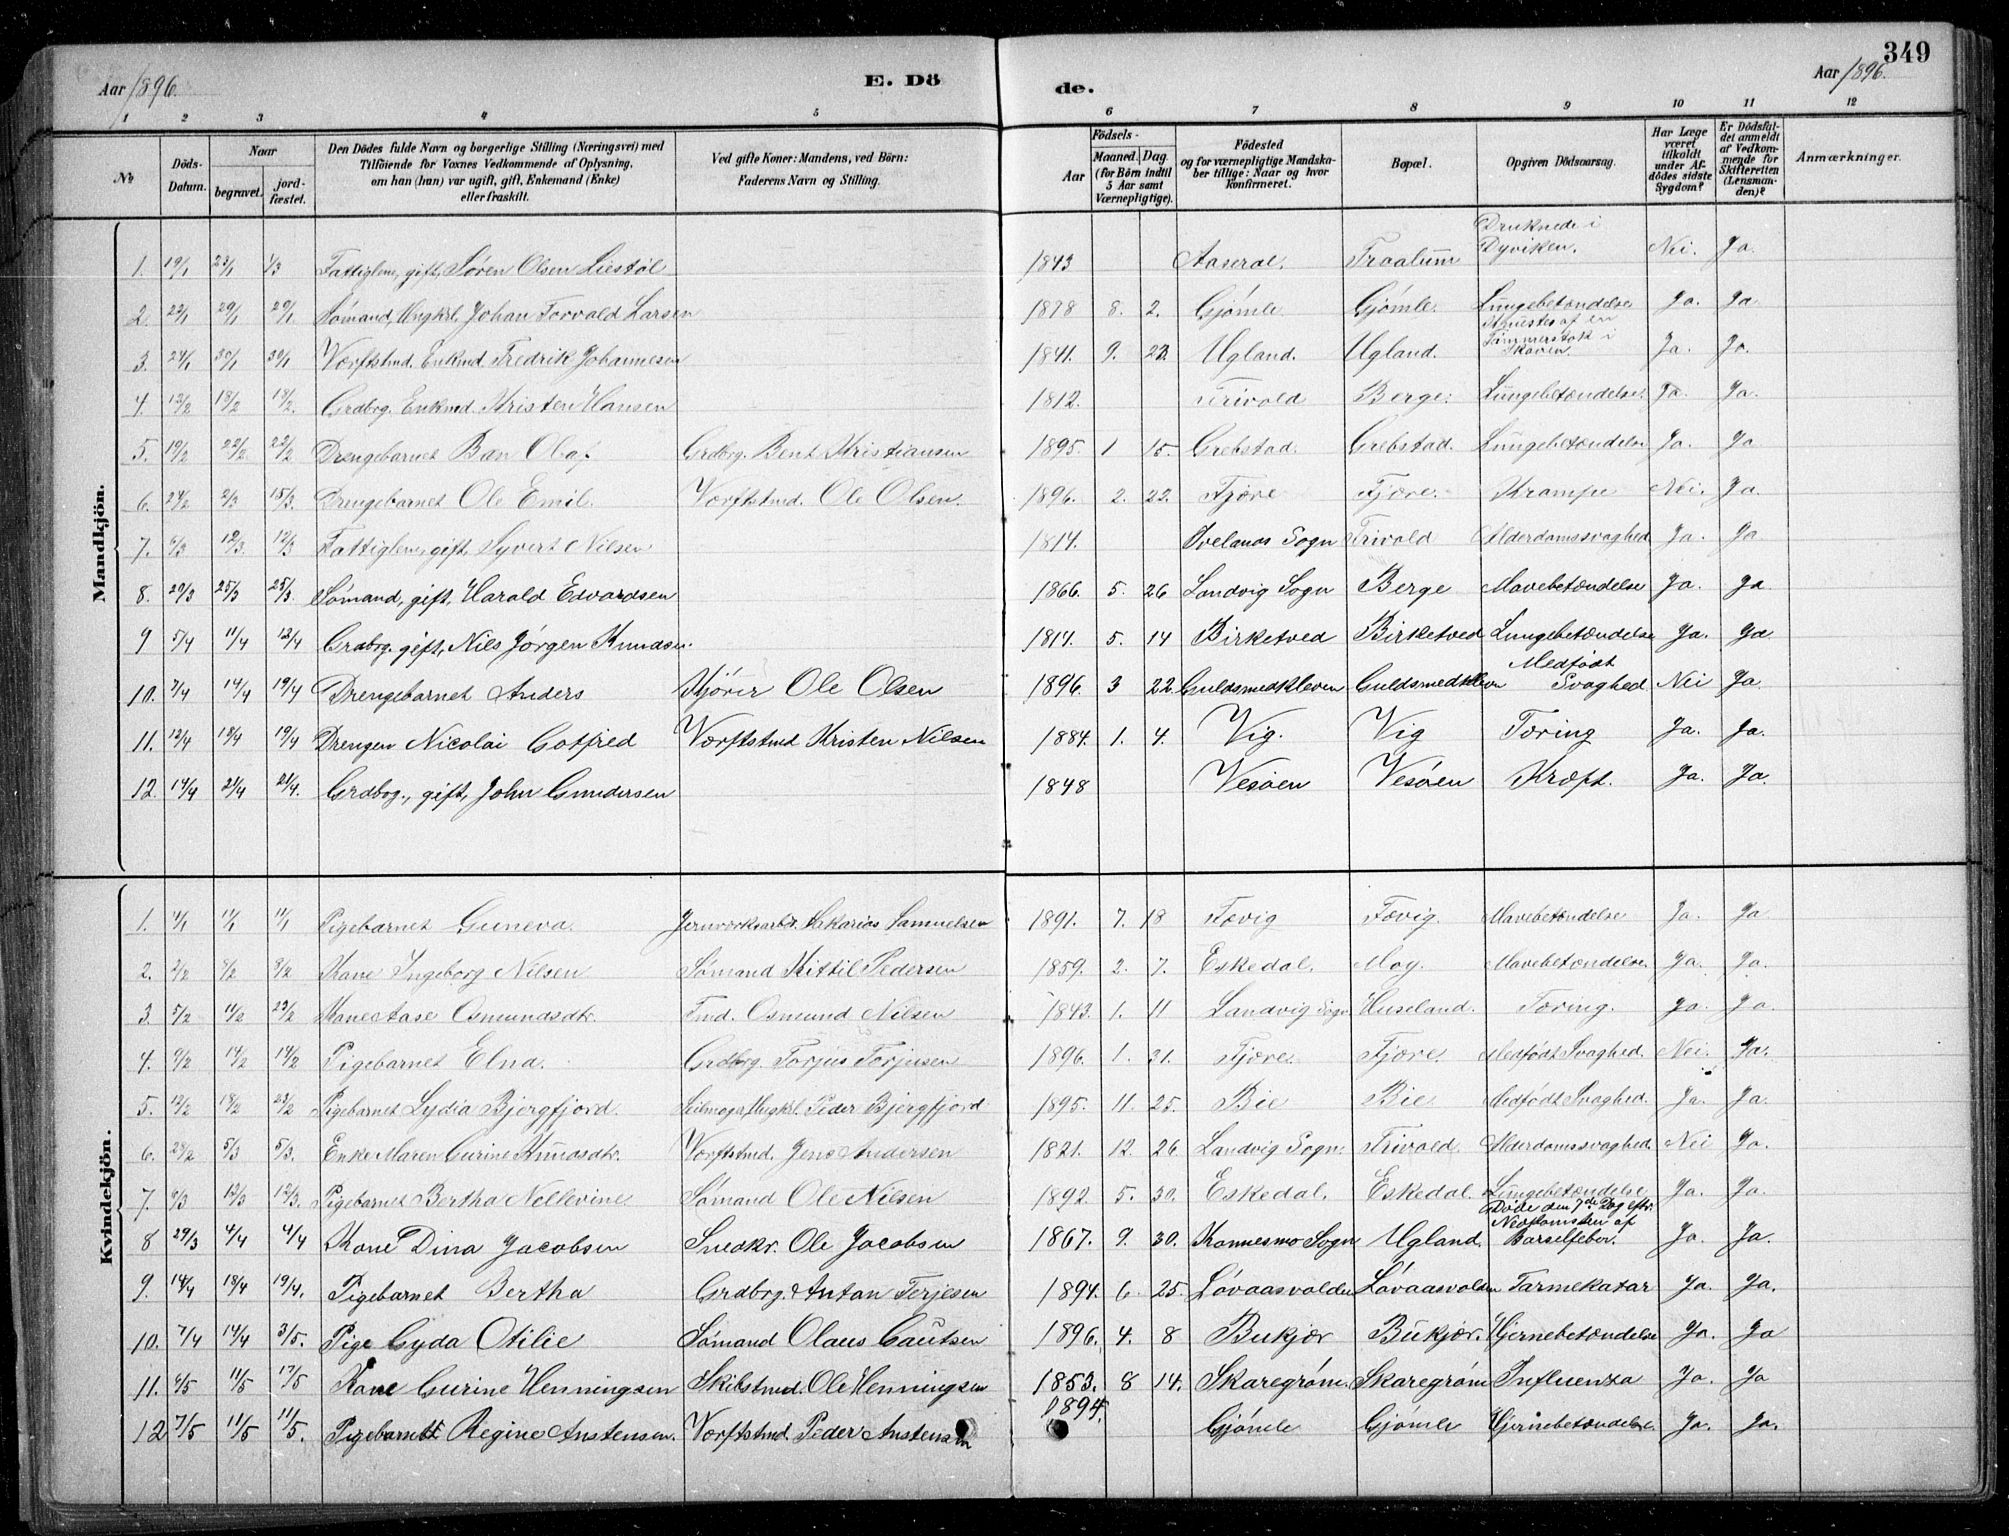 349
Aar 1896.
E. Döde.
Aar 1896.
1 2 3 4 5 6 7 8 9 10 11 12
No
Döds-Datum.
Naar begravet. jordfæstet.
Den Dödes fulde Navn og borgerlige Stilling (Næringsvei) med
Tilföiende for Voxnes Vedkommende af Oplysning,
om han (hun) var ugift, gift, Enkemand (Enke)
eller fraskilt.
Ved gifte Koner: Mandens, ved Börn:
Faderens Navn og Stilling.
Födsels-
Aar Maaned. Dag
(for Börn indtil 5 Aar samt Værnepligtige).
Födested
og for værnepligtige Mandskaber tillige: Naar og hvor konfirmeret.
Bopæl.
Opgiven Dödsaarsag.
Har Læge været tilkaldt under Afdödes sidste Sygdom?
Er Dödsfaldet anmeldt af Vedkommende for Skifteretten (Lensmanden)?
Anmærkninger.
Mandkjön.
1. 19/1 23/1 1/3 Fattiglem, gift, Sören Olsen Liestöl 1843 Aaseral. Traalum Druknede i Dyviken. Nei. Ja.
2. 22/1 29/1 29/1 Sömand, Ungkrl. Johan Torvald Larsen 1878 8. 2. Gjömle Gjömle. Lungebetændelse Ja. Ja
3. 24/1 30/1 30/1 Værftstmd. Enkmd. Fredrik Johannesen 1841. 9. Ugland. Ugland. af en Tömmerstok i Skoven. Ja. Ja.
4. 12/2 18/2 18/2. Grdbrg. Enkmd. Kristen Hansen 1812. Trivold Berge. Lungebetændelse. Ja. Ja.
5. 19/2 22/2 22/2 Drengebarnet Olaf Grdbrg. Bent Kristiansen 1895. 1 15. Grebstad. Grebstad. Lungebetændelse Ja. Ja
6. 24/2 2/3 15/3. Drengebarnet Ole Emil. Værftstmd. Ole Olsen. 1896. 2. 22. Fjære Fjære. Krampe Nei. Ja.
7. 6/3 12/3. 12/3 Fattiglem, gift, Syvert Nilsen 1814. Ivelands Sogn Trivold Alderdomssvaghed Ja. Ja
8. 20/3 25/3 25/3. Sömand, gift, Harald Edvardsen 1866. 5. 26 Landvig Sogn Berge Mavebetændelse Ja. Ja
9 5/4 11/4 12/4 Grdbrg. gift, Niels Jörgen Knudsen. 1817. 5. 14 Birketved Birketved Lungebetændelse Ja. Ja
10. 7/4 14/4 19/4 Drengebarnet Anders Ole Olsen 1896. 3 22. Guldsmedkleven Guldsmedkleven Medfödt Svaghed Nei Ja.
11. 12/4 18/4 19/4 Drengen Nicolai Gotfred Værftstmd Kristen Nilsen 1884. 1. 4. Vig. Vig Tæring Ja. Ja.
12. 14/4 21/4 21/4. Grdbrg., gift, John Gundersen 1848 Vesöen Vesöen Kræft. Ja. Ja.
Kvindekjön.
1. 4/1 11/1 11/1 Pigebarnet Guneva. Jernværksarbdr. Sakarias Samuelsen 1891. 7. 18 Fævig Fævig. Mavebetændelse Ja. Ja
2. 2/2 8/2 8/2 Kone Ingeborg Nilsen Sömand Kittil Pedersen 1859. 2. 7. Eskedal. Moy. Mavebetændelse. Ja. Ja.
3. 5/2 11/2 23/2 Kone Aase Osmundsdtr. Fmd. Osmund Nilsen 1843. 1. 11 Landvig Sogn Huseland. Tæring. Ja. Ja.
4. 9/2 14/2 14/2 Pigebarnet Elna. Grdbrg. Torjus Torjusen 1896. 1. 31. Fjære. Fjære. Medfödt Svaghed. Nei. Ja.
5. 12/2 18/2 23/2 Pigebarnet Lydia Bjergfjord. Seilmager, Ungkrl. Peder Bjergfjord 1895. 11. 25. Bie Bie. Medfödt Svaghed. Ja. Ja.
6. 28/2 5/3 5/3. Enke Maren Gurine Knudsdtr. Værftstmd. Jens Andersen 1821. 12. 26. Landvig Sogn. Trivold. Alderdomssvaghed. Nei Ja.
7. 6/3 12/3 12/3. Pigebarnet Bertha Nellevine. Sömand Ole Nilsen 1892. 5. 30. Eskedal. Eskedal. Lungebetændelse Ja. Ja.
8 29/3 4/4 4/4 Kone Dina Jacobsen Snedkr. Ole Jacobsen 1867. 9. 30. Konnesmo Sogn Ugland. Döde den 7de Dag eftr. Nedkomsten af Barselfeber. Ja. Ja.
9. 14/4 18/4 19/4. Pigebarnet Bertha Grdbrg. Antan Terjesen 1894. 6. 25. Lövaasvolden Lövaasvolden Tarmekatar Ja. Ja.
10. 7/4 14/4 3/5. Pige Gyda Otilie Sömand Olaus Gautsen 1896. 4. 8 Bukjær Bukjær. Hjernebetændelse Ja. Ja
11. 6/5 11/5 17/5 Kone Gurine Henningsen Skibstmd. Ole Henningsen 1853. 8 14. Skaregröm. Skaregröm Influenza Ja. Ja
12 7/5 11/5 11/5. Pigebarnet Regine Austensen. Værftstmd. Peder Austensen 1894. Gjömle Gjömle Hjernebetændelse. Ja. Ja.